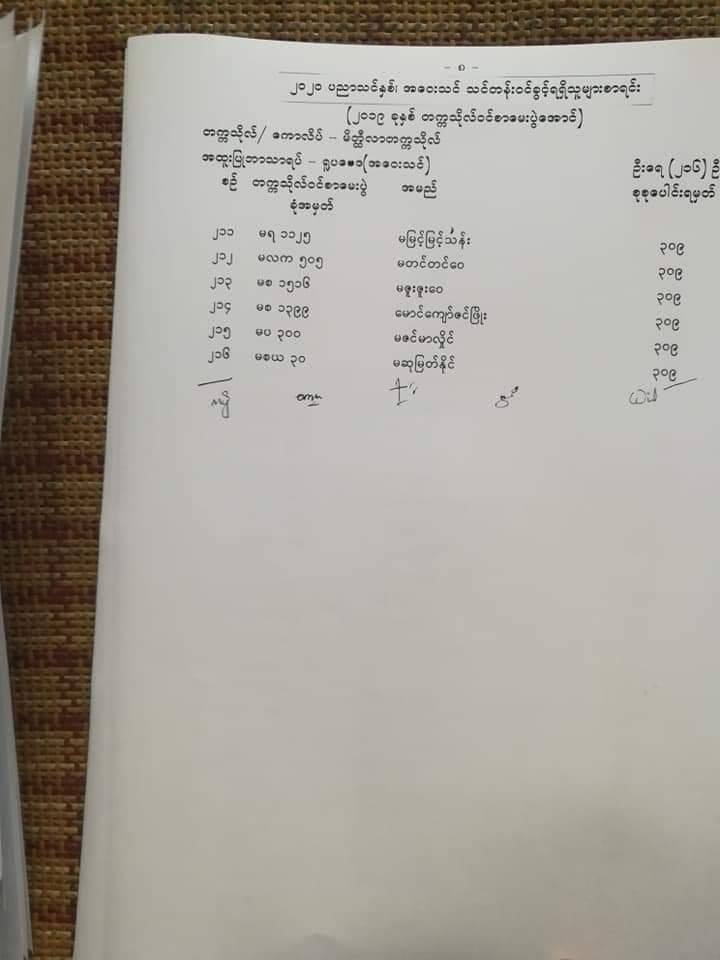 - ၈ -
၂၀၂၀ ပညာသင်နှစ်၊ အဝေးသင် သင်တန်းဝင်ခွင့်ရရှိသူများစာရင်း
(၂၀၁၉ ခုနှစ် တက္ကသိုလ်ဝင်စာမေးပွဲအောင်)
တက္ကသိုလ်/ ကောလိပ် - မိတ္ထီလာတက္ကသိုလ်
အထူးပြုဘာသာရပ် - ရူပဗေဒ(အဝေးသင်) ဦးရေ (၂၁၆) ဦ
စဉ် တက္ကသိုလ်ဝင်စာမေးပွဲ အမည် စုစုပေါင်းရမှတ်
ခုံအမှတ်
၂၁၁ မရ ၁၁၂၅ မမြင့်မြင့်သန်း ၃၀၉
၂၁၂ မလက ၅၀၅ မတင်တင်ဝေ ၃၀၉
၂၁၃ မစ ၁၅၁၆ မဇူးဇူးဝေ ၃၀၉
၂၁၄ မစ ၁၃၉၉ မောင်ကျော်ဇင်ဖြိုး ၃၀၉
၂၁၅ မပ ၃၀၀ မဇင်မာလှိုင် ၃၀၉
၂၁၆ မစယ ၃၀ မဆုမြတ်နိုင် ၃၀၉